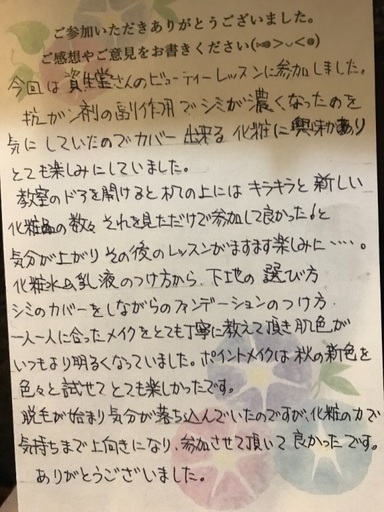 ご参加いただきありがとうございました。
ご感想やご意見をお書きください(⋈◍＞◡＜◍)
今回は資生堂さんのビューティーレッスンに参加しました。
抗がン剤の副作用でシミが濃くなったのを
気にしていたのでカバー出来る化粧に興味があり
とても楽しみにしていました。
教室のドアを開けると机の上にはキラキラと新しい
化粧品の数々それを見ただけで参加して良かった!と
気分が上がりその後のレッスンがますます楽しみに・・・・。
化粧水や乳液のつけ方から、下地の選び方
シミのカバーをしながらのファンデーションのつけ方.
一人一人に合ったメイクをとても丁寧に教えて頂き肌色が
いつもより明るくなっていました。ポイントメイクは秋の新色を
色々と試せてとても楽しかったです。
脱毛が始まり気分が落ち込んでいたのですが、化粧の力で
気持ちまで上向きになり、参加させて頂いて良かったです。
ありがとうございました。